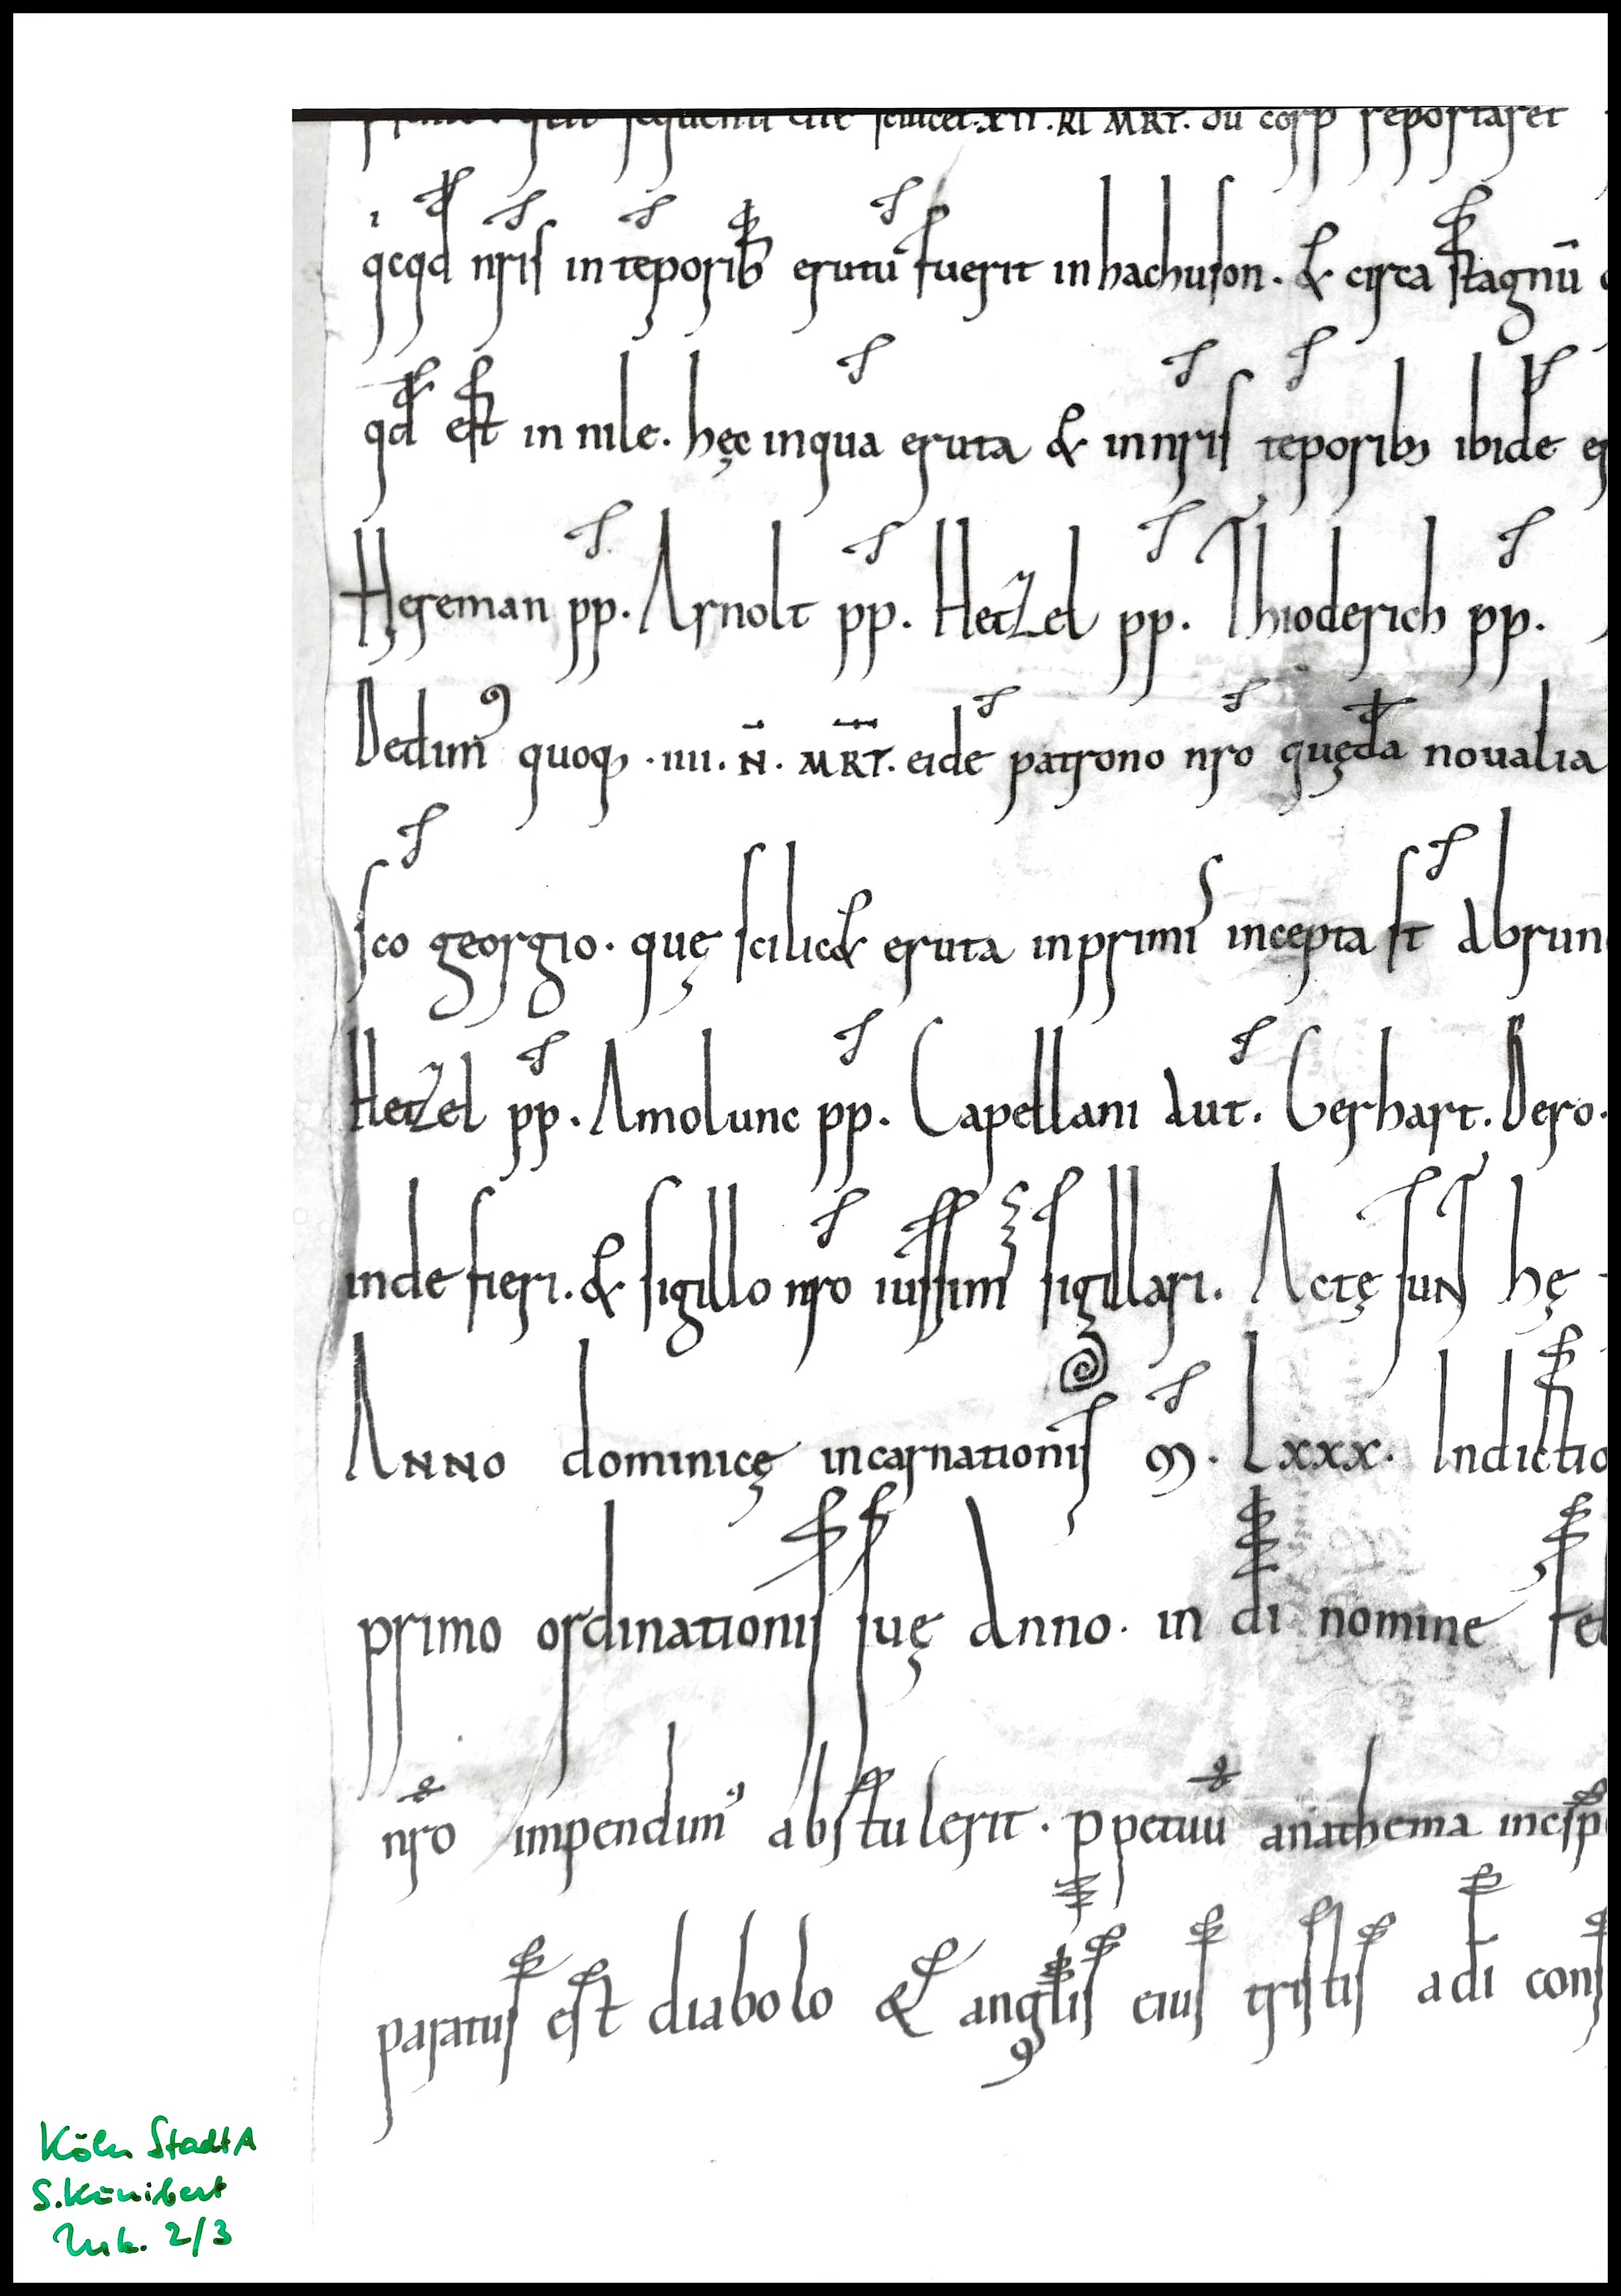 sequenti die scilicet . XII . KL MRT . dū corp̄ reportaret
qͥcqd̄ nr̄is in tēporib; erutū fuerit in hachuson . & circa stagnū
qd̄ est in nile . hęc inquā eruta & in nr̄is tēporib; ibidē er
Hereman pp̄ . Arnolt pp̄ . Hetzel pp̄ . Thioderich pp̄ .
Dedimꝰ quoq; . IIII . N̄ . MR̄T . eidē patrono nr̄o quędā noualia
sc̄o georgio . quę scilic& eruta inprimis incepta st̄ Abrun
Hetzel pp̄ . Amolunc pp̄ . Capellani aut̄ . Gerhart . Dero .
inde fieri . & sigillo nr̄o iussimꝰ sigillari . Actę sunt hę
Anno dominicę incarnationis M̄ . Lxxx . Indictio
primo ordinationis suę Anno . in dī nomine fel
nr̄o impendimꝰ abstulerit . ꝑpetuū anathema incip
paratus est diabolo & angl̄is eius tristis a dī cons
Köln StadtA
S. Kunibert
Urk. 2/3